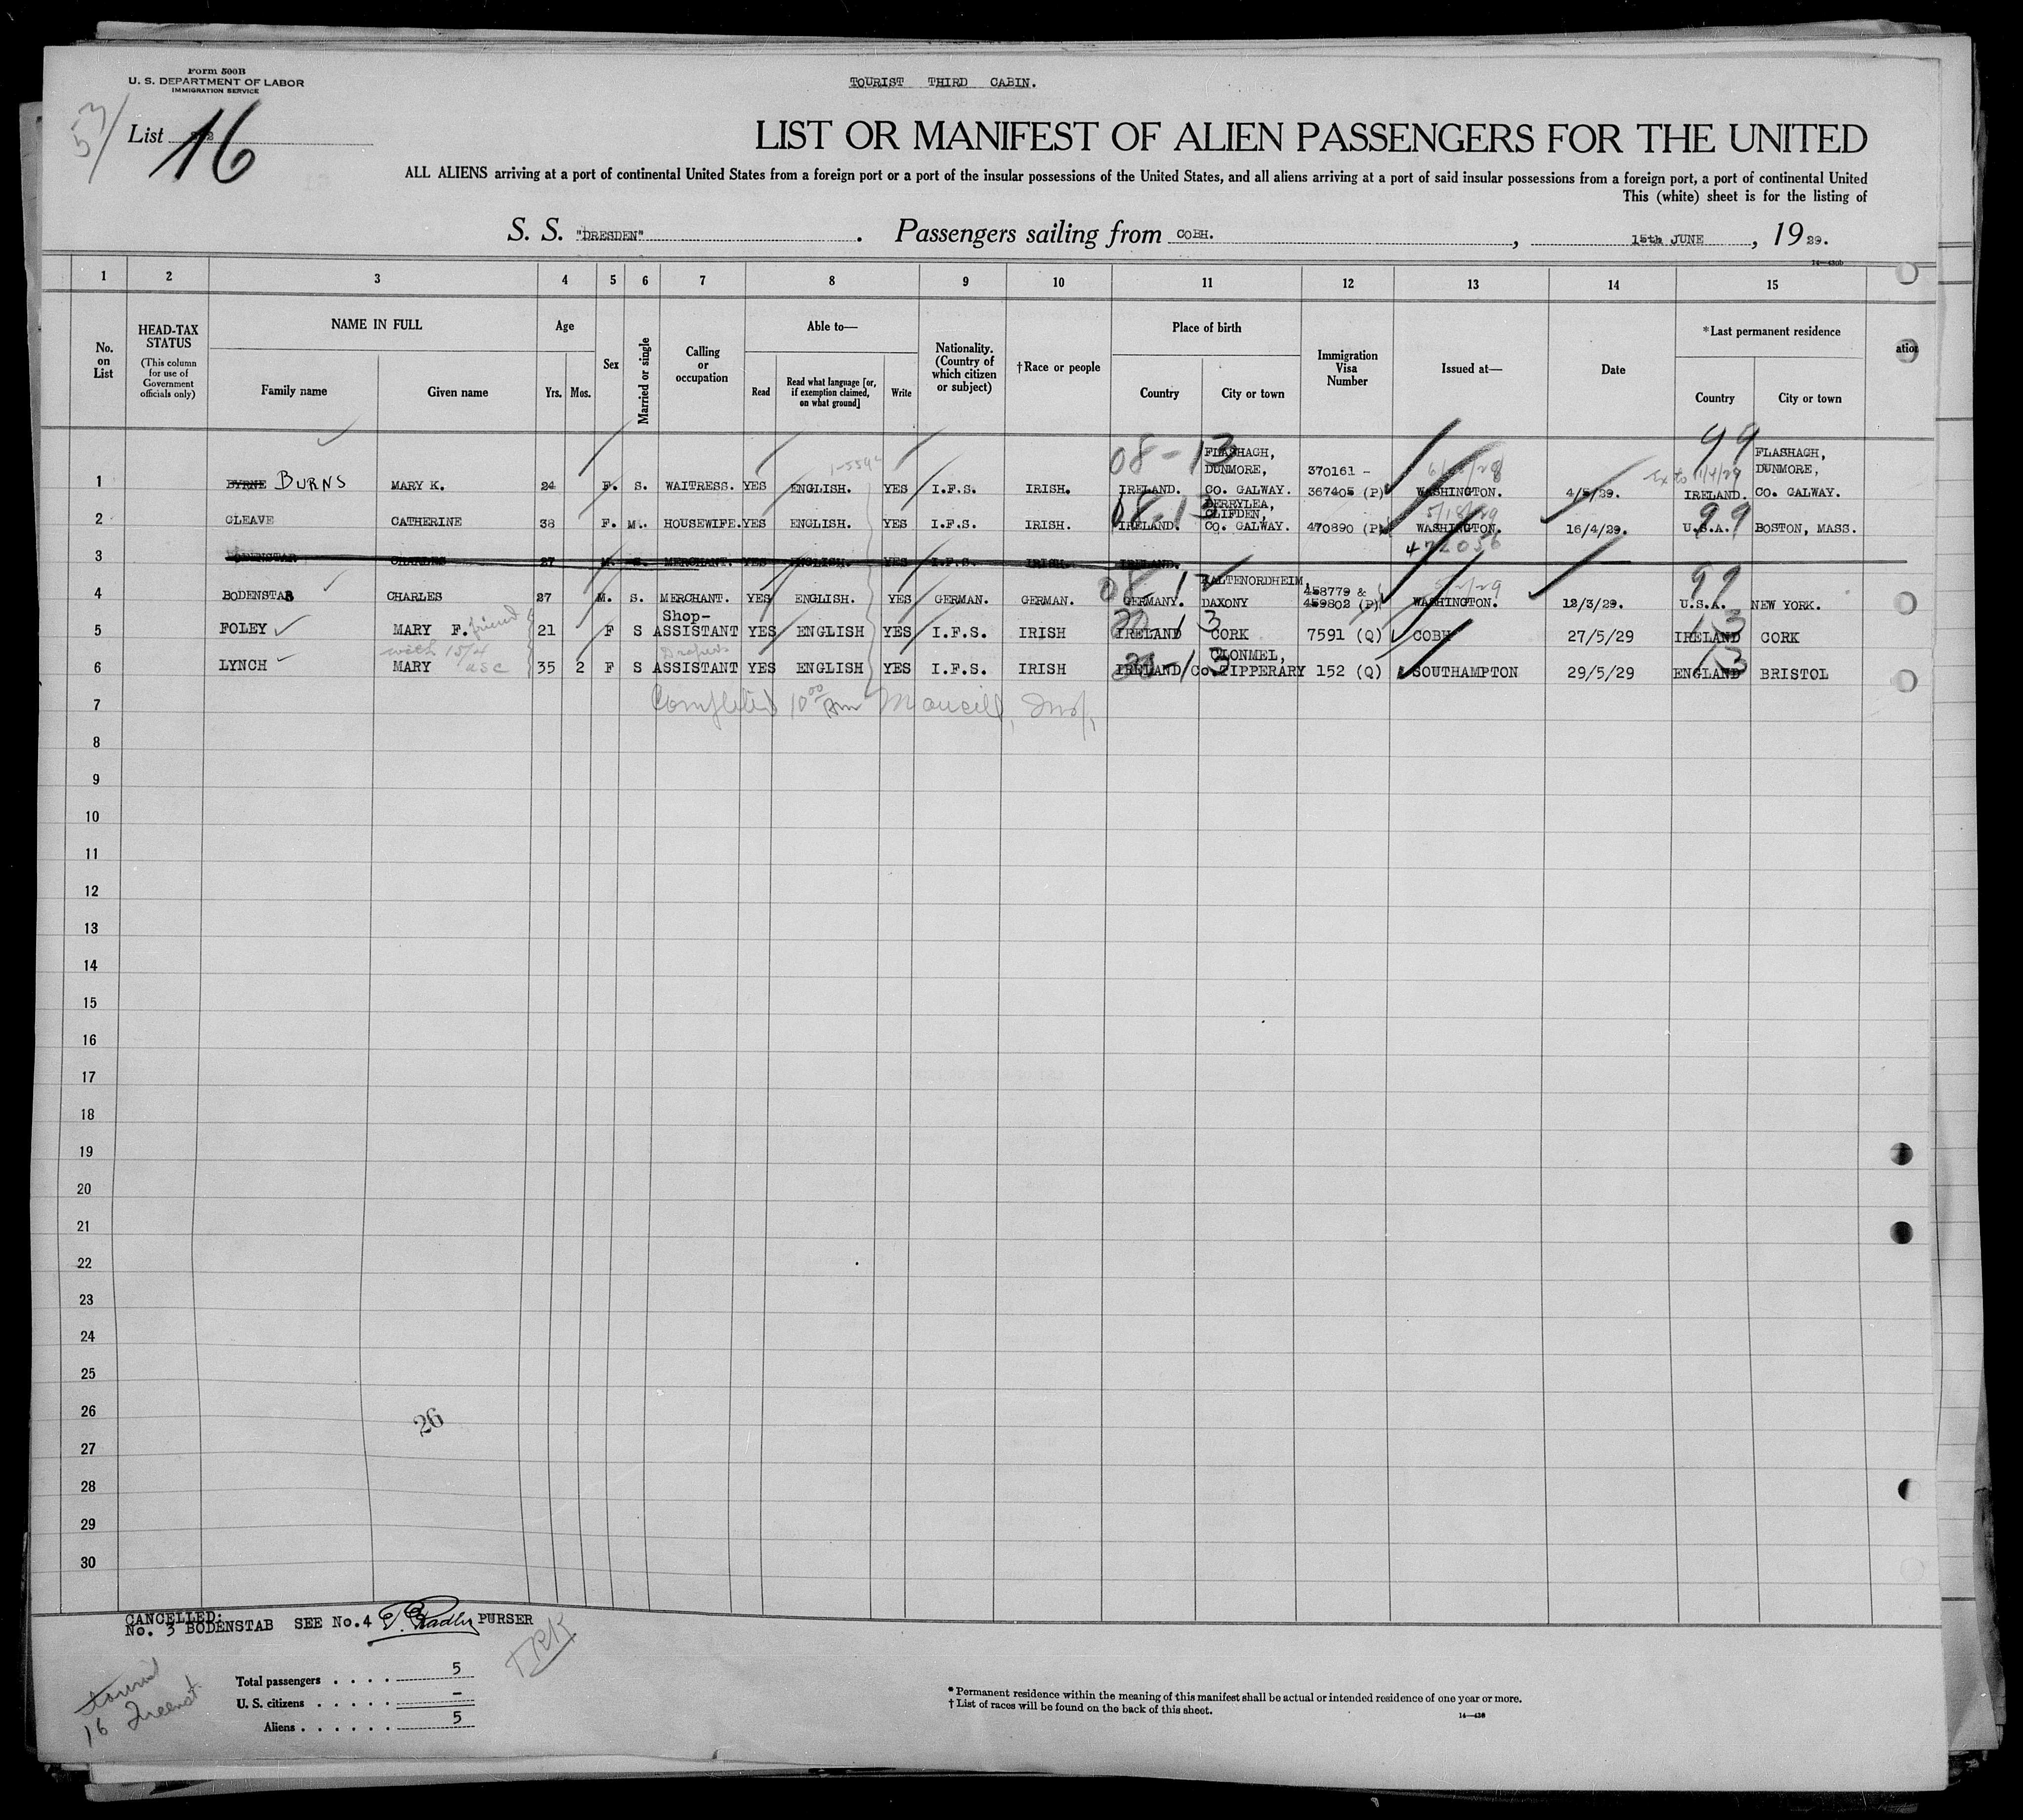 Form 500B
U. S. DEPARTMENT OF LABOR
IMMIGRATION SERVICE
TOURIST THIRD CABIN.
53/
List 16
LIST OR MANIFEST OF ALIEN PASSENGERS FOR THE UNITED
ALL ALIENS arriving at a port of continental United States from a foreign port or a port of the insular possessions of the United States, and all aliens arriving at a port of said insular possessions from a foreign port, a port of continental United
This (white) sheet is for the listing of
S. S. "DRESDEN" . Passengers sailing from COBH. , 15th JUNE , 19 29.
14—430b
1 2 3 4 5 6 7 8 9 10 11 12 13 14 15
No. on List
HEAD-TAX STATUS (This column for use of Government officials only)
NAME IN FULL Family name Given name
Age Yrs. Mos.
Sex
Married or single
Calling or occupation
Able to— Read Read what language [or, if exemption claimed, on what ground] Write
Nationality. (Country of which citizen or subject)
†Race or people
Place of birth Country City or town
Immigration Visa Number
Issued at—
Date
*Last permanent residence Country City or town
08-13 FLASHAGH, 99 FLASHAGH,
DUNMORE, 370161 - DUNMORE,
1 BYRNE BURNS MARY K. 24 F. S. WAITRESS. YES ENGLISH. YES I.F.S. IRISH. IRELAND. CO. GALWAY. 367405 (P) WASHINGTON. 4/5/29. IRELAND. CO. GALWAY.
08-13 DERRYLEA, CLIFDEN, 5/18/29 99
2 CLEAVE CATHERINE 38 F. M. HOUSEWIFE. YES ENGLISH. YES I.F.S. IRISH. IRELAND. CO. GALWAY. 470890 (P) WASHINGTON. 16/4/29. U.S.A. BOSTON, MASS.
472056
3 BODENSTAB CHARLES 27 M. S. MERCHANT. YES ENGLISH. YES I.F.S. IRISH. IRELAND.
08-1 KALTENORDHEIM, 458779 & 99
4 BODENSTAB CHARLES 27 M. S. MERCHANT. YES ENGLISH. YES GERMAN. GERMAN. GERMANY. DAXONY 459802 (P) WASHINGTON. 12/3/29. U.S.A. NEW YORK.
friend Shop- 13 13
5 FOLEY MARY F. 21 F S ASSISTANT YES ENGLISH YES I.F.S. IRISH IRELAND CORK 7591 (Q) COBH 27/5/29 IRELAND CORK
with 15/4 usc Drapers -13 CLONMEL, 13
6 LYNCH MARY 35 2 F S ASSISTANT YES ENGLISH YES I.F.S. IRISH IRELAND/Co. TIPPERARY 152 (Q) SOUTHAMPTON 29/5/29 ENGLAND BRISTOL
7 Completed 10 00 am
8
9
10
11
12
13
14
15
16
17
18
19
20
21
22
23
24
25
26 26
27
28
29
30
CANCELLED:
No. 3 BODENSTAB SEE No.4 PURSER
TRK
Total passengers . . . . . 5
U. S. citizens . . . . . –
Aliens . . . . . . 5
tourist
16
* Permanent residence within the meaning of this manifest shall be actual or intended residence of one year or more.
† List of races will be found on the back of this sheet.
14—430